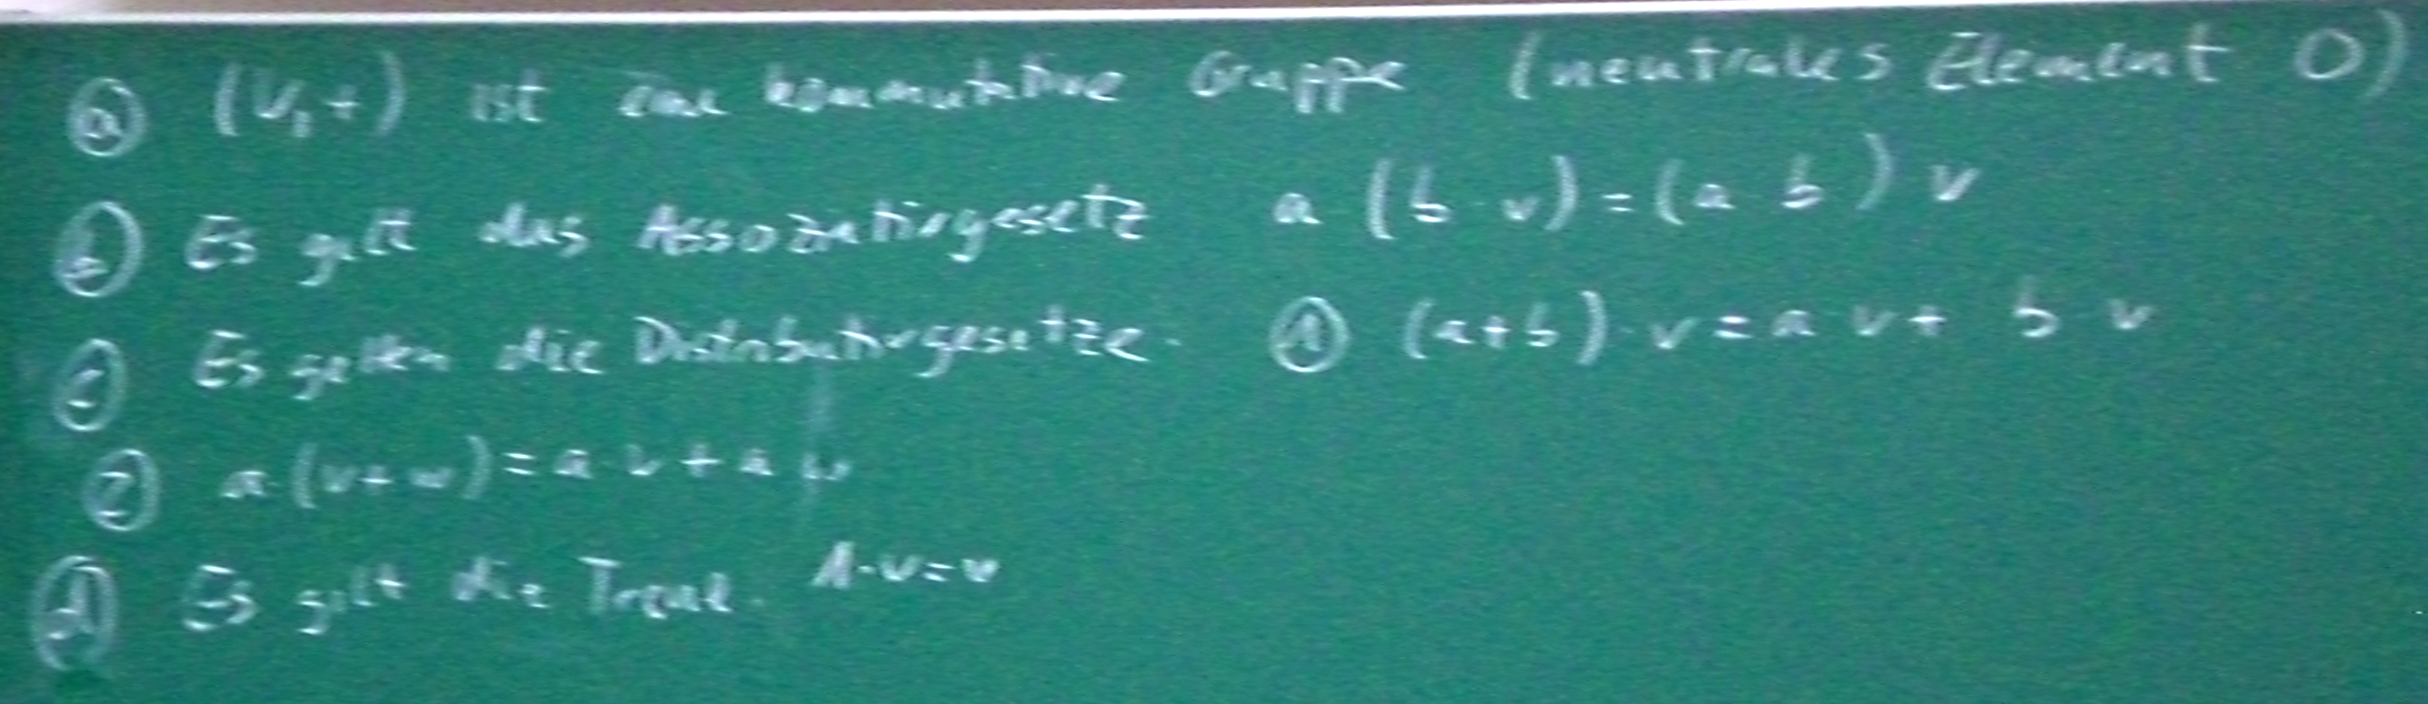 ⓐ (V,+) ist eine kommutative Gruppe (neutrales Element 0)
ⓑ Es gilt das Assoziativgesetz a (b · v) = (a b) v
ⓒ Es gelten die Distributivgesetze. ① (a+b) · v = a v + b v
② a (v+w) = a · v + a w
ⓓ Es gilt die 1 · v = v